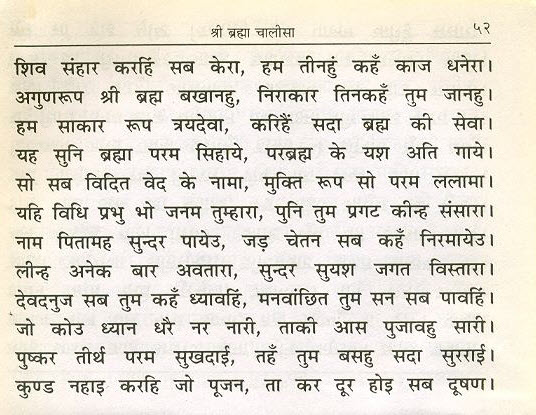 श्री ब्रह्मा चालीसा ५२
शिव संहार करहिं सब केरा, हम तीनहुं कहँ काज धनेरा।
अगुणरूप श्री ब्रह्म बखानहु, निराकार तिनकहँ तुम जानहु।
हम साकार रूप त्रयदेवा, करिहैं सदा ब्रह्म की सेवा।
यह सुनि ब्रह्मा परम सिहाये, परब्रह्म के यश अति गाये।
सो सब विदित वेद के नामा, मुक्ति रूप सो परम ललामा।
यहि विधि प्रभु भो जनम तुम्हारा, पुनि तुम प्रगट कीन्ह संसारा।
नाम पितामह सुन्दर पायेउ, जड़ चेतन सब कहँ निरमायेउ।
लीन्ह अनेक बार अवतारा, सुन्दर सुयश जगत विस्तारा।
देवदनुज सब तुम कहँ ध्यावहिं, मनवांछित तुम सन सब पावहिं।
जो कोउ ध्यान धरै नर नारी, ताकी आस पुजावहु सारी।
पुष्कर तीर्थ परम सुखदाई, तहँ तुम बसहु सदा सुरराई।
कुण्ड नहाइ करहि जो पूजन, ता कर दूर होइ सब दूषण।